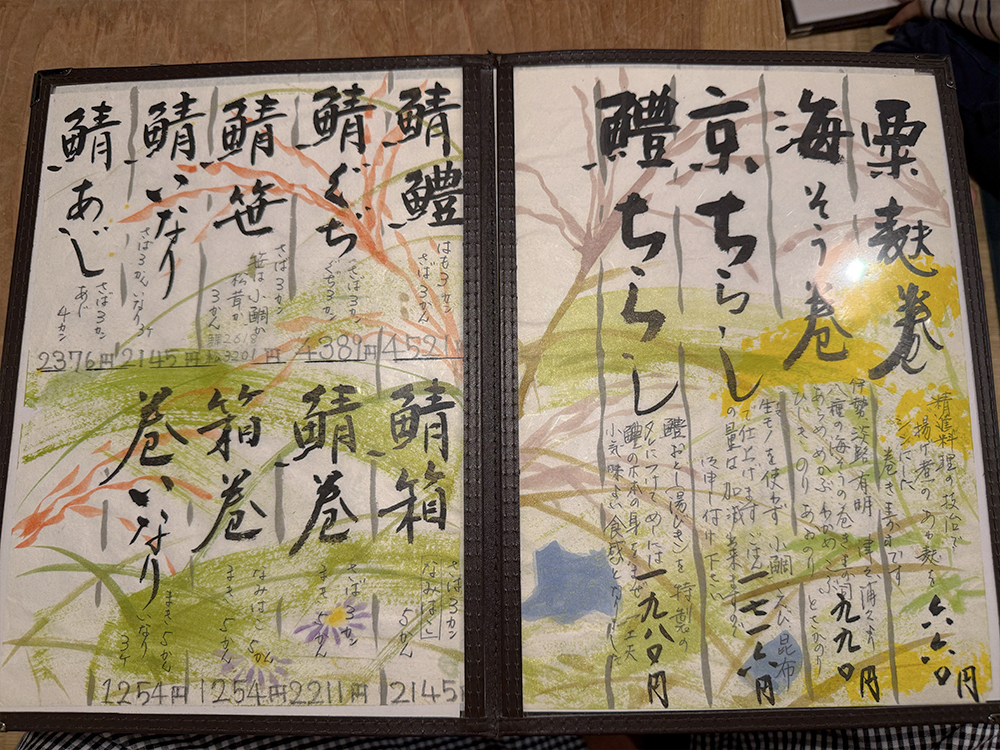 粟麩巻
精進料理の技法で
揚げ煮のあわ麩を
シンにした
巻きものです
六六〇円
海そう巻
伊勢 淡路 有明 津々浦々より
八種の海そうの巻きもの
あらめ めかぶ わかめ こんぶ
ひじき のり あおのり とさかのり
九九〇円
京ちらし
生モノを使わず 小鯛 えび 昆布
で仕上げます ごはん
の量は加減出来ますので
一七一六円
鱧ちらし
鱧おとし(湯びき)を特製の
タレにつけて めには
鱧の本の身をまぜ 一工夫
小気味よい食感となりました
一九八〇円
鯖鱧
はも3カン
さば3かん
4521円
鯖ぐち
さば3カン
ぐち3カン
4389円
鯖笹
さば3カン
笹は小鯛か
3かん
鯖いなり
さば3かん いなり3ケ
2145円
鯖あじ
さば3カン
あじ4カン
2376円
鯖箱
さば3カン
なみはこ 5かん
2145
鯖巻
さば3カン
まき5かん
2211円
箱巻
なみはこ5かん
まき5かん
1254円
巻いなり
まき5かん
いなり3ケ
1254円